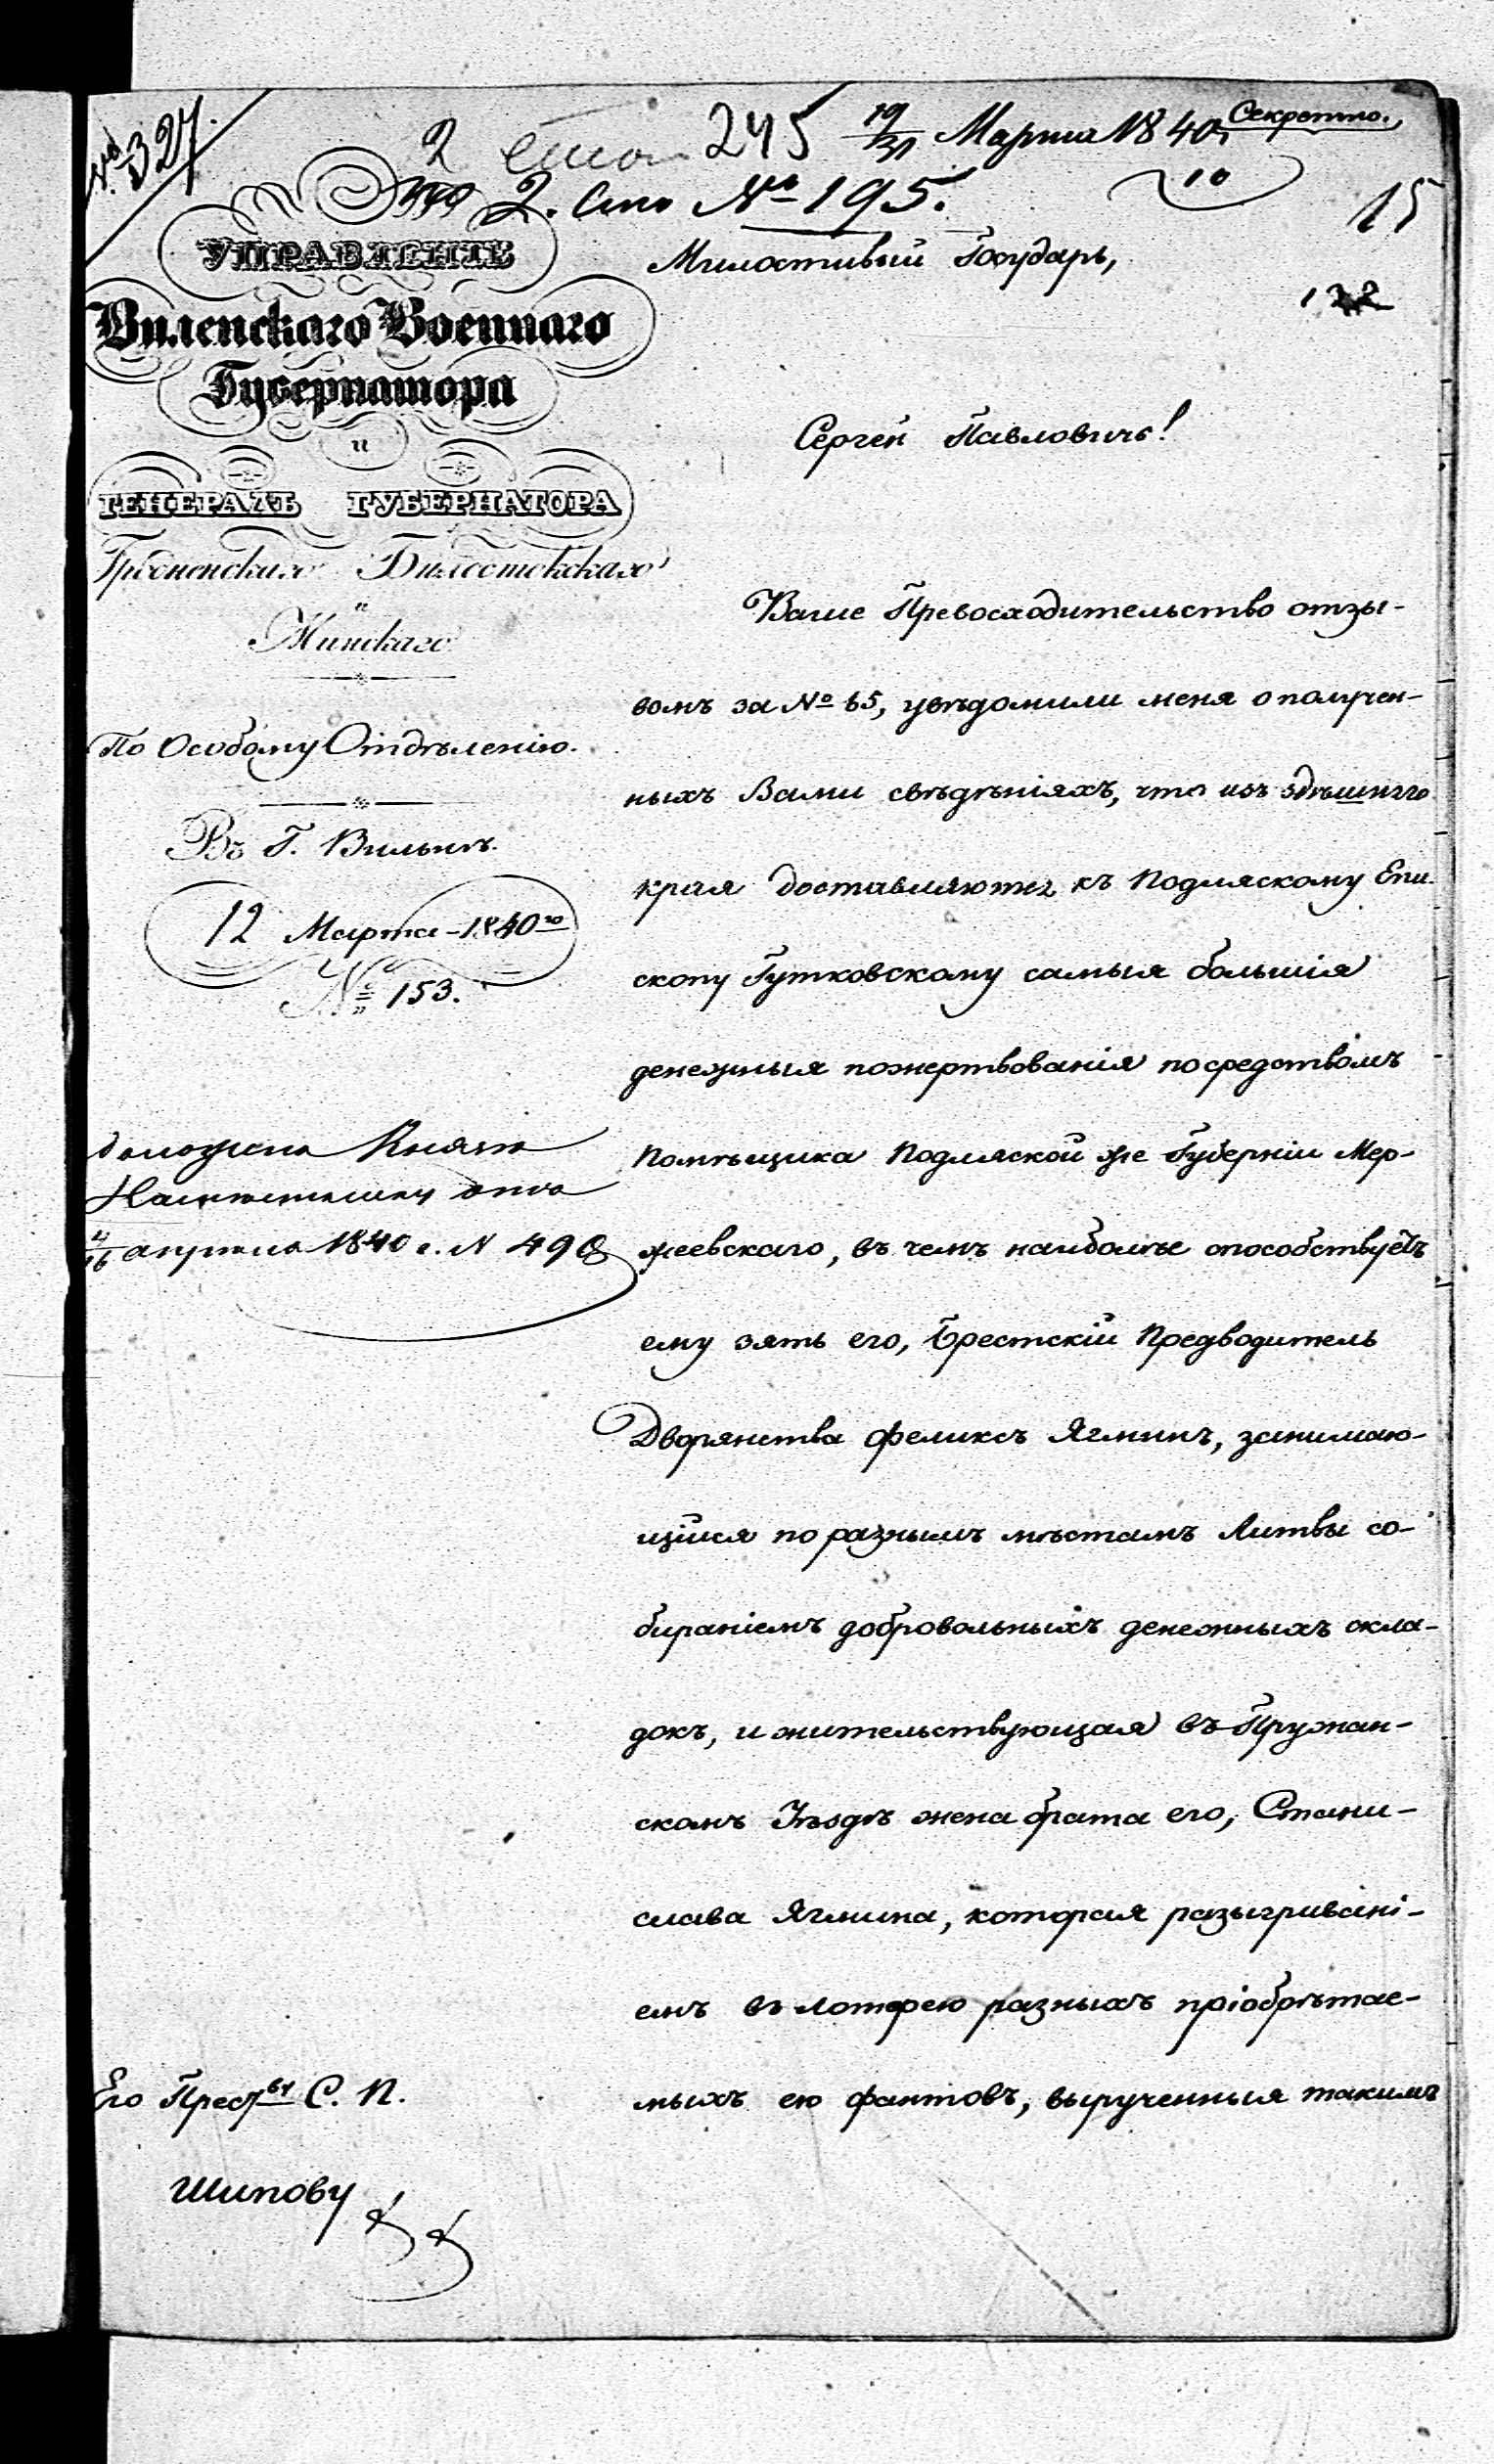 № 327.
2 245 19/31 Марта 1840 г. Секретно.
2. Сто № 195.
10
15
122
УПРАВЛЕНІЕ
Виленскаго Военнаго
Губернатора
и
ГЕНЕРАЛЪ ГУБЕРНАТОРА
Гродненскаго Бѣлостокскаго
и
Минскаго
По Особому Отдѣленію.
Въ Г. Вильнѣ.
12 Марта 1840 го
№ 153.
доложено Князю
Намѣстнику
4/16 апрѣля 1840 г. N 498
Его Прев ву С. П.
Шипову
Милостивый Государь,
Сергей Павловичь!
Ваше Превосходительство отзы-
вомъ за № 65, увѣдомили меня о получен-
ныхъ Вами свѣдѣніяхъ, что изъ здѣшняго
края доставляются къ Подляскому Епи-
скопу Гутковскому самыя большія
денежныя пожертвованія посредствомъ
помѣщика Подляской же Губерніи Мер-
жеевскаго, въ чемъ наиболѣе способствуетъ
ему зять его, Брестскій Предводитель
Дворянства Феликсъ Ягминъ, занимаю-
щійся по разнымъ мѣстамъ Литвы со-
бираніемъ добровольныхъ денежныхъ скла-
докъ, и жительствующая въ Пружан-
скомъ Уѣздѣ жена брата его, Стани-
слава Ягмина, которая разыгривані-
емъ въ лотерею разныхъ пріобрѣтае-
мыхъ ею фантовъ, вырученныя такимъ